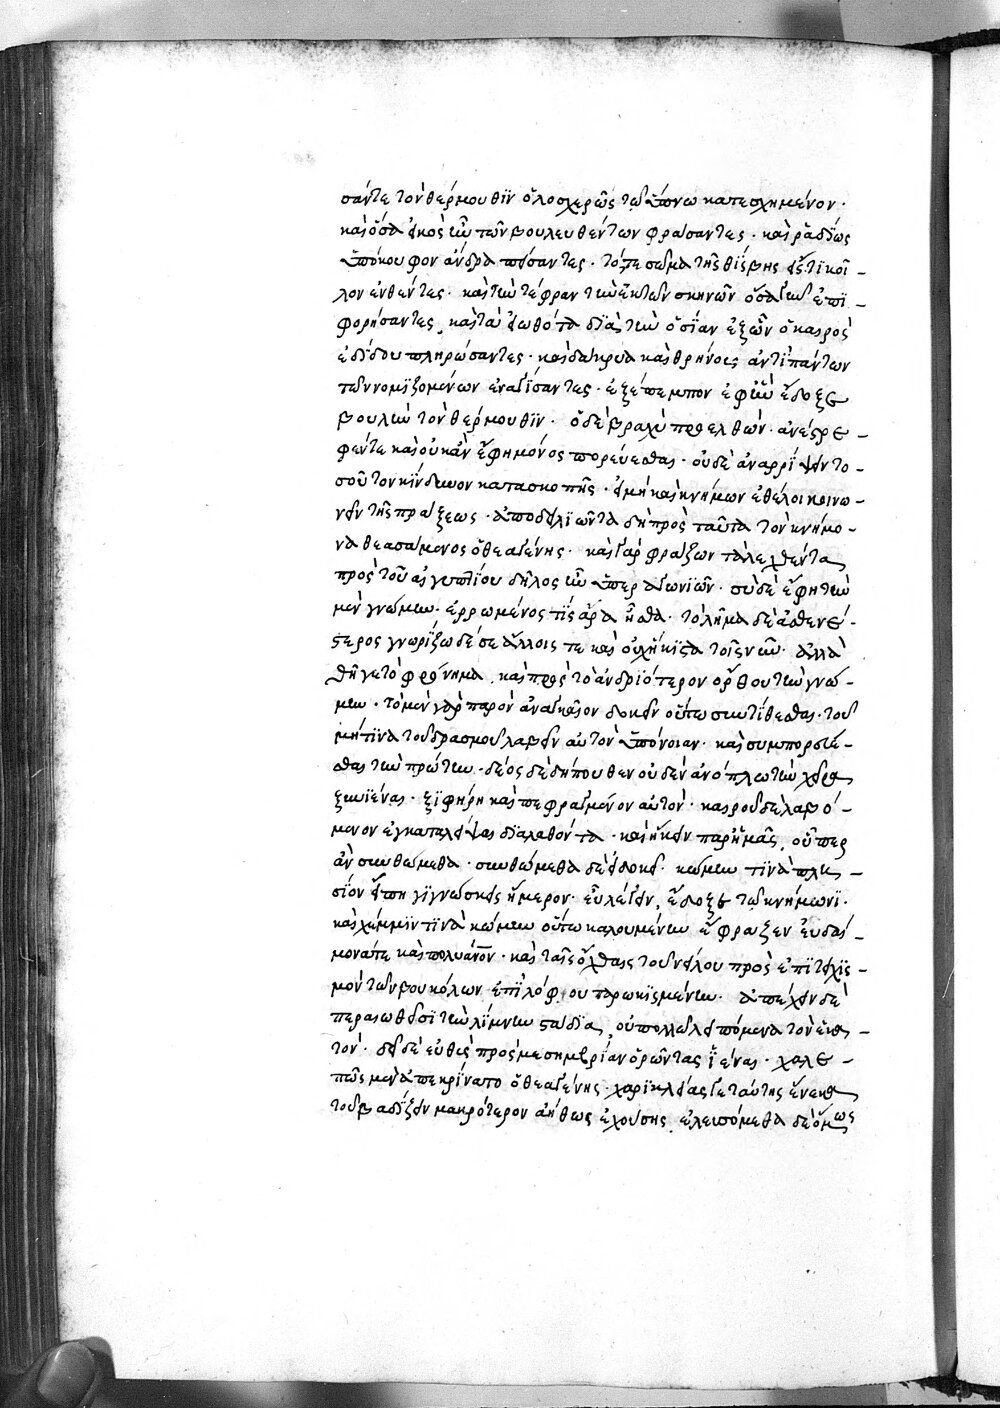 σάντε τὸν θέρμουθϊν ὁλοσχερῶς τῷ ὕπνω κατεσχημένον·
καὶ ὅσα εἰκὸς ἦν τῶν βουλευθέντων φράσαντες· καὶ ῥαδίως
ὑπόκουφον ἄνδρα πείσαντες· τό, τε σῶμα τῆς θίσβης ἔς τι κοῖ-
λον ἐνθέντες· καὶ τὴν τέφραν τὴν ἐκ τῶν σκηνῶν ὅση ἦν ἐπι-
φορήσαντες, καὶ τὰ εἰωθότα διὰ τὴν ὁσίαν ἐξ ὧν ὁ καιρὸς
ἐδίδου πληρώσαντες· καὶ δάκρυα καὶ θρήνοις ἀντὶ πάντων
τῶν νομιζομένων ἐναγίσαντες· ἐξέπεμπον ἐφ' ἣν ἔδοξε
βουλὴν τὸν θέρμουθϊν· ὁ δὲ βραχὺ προελθών· ἀνέςρε-
φέν τε καὶ οὐκ ἂν ἔφη μόνος πορεύεσθαι· οὐδὲ ἀναρρίψειν το-
σοῦτον κίνδυνον κατασκοπῆς· εἰ μὴ καὶ κνήμων ἐθέλοι κοινω-
νεῖν τῆς πράξεως· ἀποδειλιῶντα δὴ πρὸς ταῦτα τὸν κνήμο-
να θεασάμενος ὁ θεαγένης· καὶ γὰρ φράζων τὰ λεχθέντα
πρὸς τοῦ αἰγυπτίου δῆλος ἦν ὑπεραγωνιῶν· σὺ δὲ ἔφη τὴν
μὲν γνώμην· ἐρρωμένος τίς ἄρα ἦσθα· τὸ λῆμα δὲ ἀσθενέ-
ςερος γνωρίζω δέ σε ἄλλοις τε καὶ οὐχ ἥκιςα τοῖς νῦν· ἀλλὰ
θῆγε τὸ φρόνημα, καὶ πρὸς τὸ ἀνδριότερον ὄρθου τὴν γνώ-
μην· τὸ μὲν γὰρ παρὸν ἀναγκαῖον δοκεῖν οὕτω συντίθεσθαι· τοῦ
μή τινα τοῦ δρασμοῦ λαβεῖν αὐτὸν ὑπόνοιαν· καὶ συμπορεύε-
σθαι τὴν πρώτην· δέος δὲ δήπουθεν οὐδὲν ἀνόπλω τὴν χεῖρα
ξυνϊέναι· ξιφήρη καὶ πεφραγμένον αὐτόν· καιροῦ δὲ λαβό-
μενον ἐγκαταλεῖψαι διαλαθόντα· καὶ ἥκειν παρ' ἡμᾶς, οὗπερ
ἂν συνθώμεθα· συνθώμεθα δὲ εἰ δοκεῖ· κώμην τινὰ πλη-
σίον εἴ πη γϊγνώσκεις ἥμερον· εὖ λέγειν, ἔδοξε τῷ κνήμωνϊ·
καὶ χέμμιν τινὰ κώμην οὕτω καλουμένην ἔφραζεν εὐδαί-
μονά τε καὶ πολυάνον· καὶ ταῖς ὄχθαις τοῦ νείλου πρὸς ἐπιτειχις-
μὸν τῶν βουκόλων ἐπὶ λόφου παρωκισμένην· ἀπέχειν δὲ
περαιωθεῖσι τὴν λίμνην ςαδία, οὐ πολλῷ λειπόμενα τῶν ἑκα-
τόν· δεῖ δὲ εὐθὺς πρὸς μεσημβρίαν ὁρῶντας ἰέναι· χαλε-
πῶς μὲν ἀπεκρίνατο ὁ θεαγένης· χαρικλείας γε ταύτης ἕνεκα
τοῦ βαδίζειν μακρότερον ἀήθως ἐχούσης, ἐλευσόμεθα δὲ ὅμως